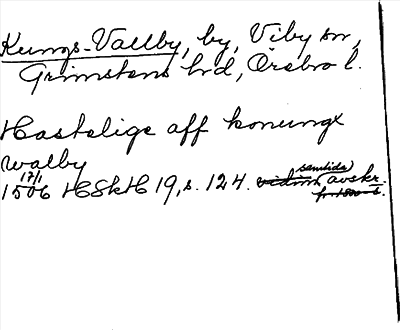 Kungs-Vallby, by, Viby sn,
Grimstens hd, Örebro l.
Hastelige aff konungx
walby
17/1 samtida
1506 HSkH 19, s. 124. vidim. avskr.